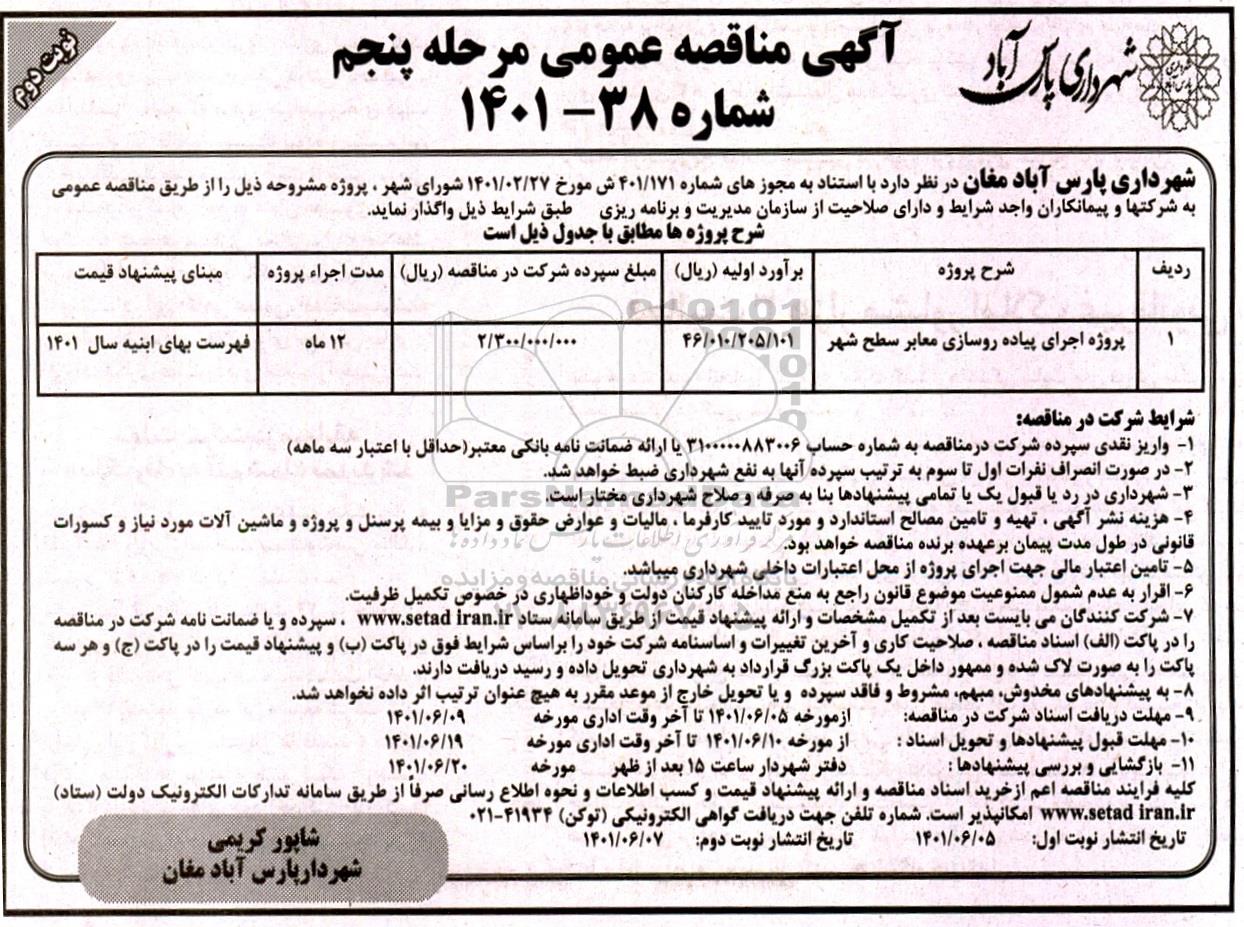 نوبت دوم
شهرداری پارس آباد
آگهی مناقصه عمومی مرحله پنجم
شماره ۳۸ – ۱۴۰۱
شهرداری پارس آباد مغان در نظر دارد با استناد به مجوز های شماره ۴۰۱/۱۷۱ ش مورخ ۱۴۰۱/۰۲/۲۷ شورای شهر ، پروژه مشروحه ذیل را از طریق مناقصه عمومی
به شرکتها و پیمانکاران واجد شرایط و دارای صلاحیت از سازمان مدیریت و برنامه ریزی طبق شرایط ذیل واگذار نماید.
شرح پروژه ها مطابق با جدول ذیل است
ردیف شرح پروژه برآورد اولیه (ریال) مبلغ سپرده شرکت در مناقصه (ریال) مدت اجراء پروژه مبنای پیشنهاد قیمت
۱ پروژه اجرای پیاده روسازی معابر سطح شهر ۴۶/۰۱۰/۲۰۵/۱۰۱ ۲/۳۰۰/۰۰۰/۰۰۰ ۱۲ ماه فهرست بهای ابنیه سال ۱۴۰۱
شرایط شرکت در مناقصه:
۱- واریز نقدی سپرده شرکت درمناقصه به شماره حساب ۳۱۰۰۰۰۰۸۸۳۰۰۶ یا ارائه ضمانت نامه بانکی معتبر(حداقل با اعتبار سه ماهه)
۲- در صورت انصراف نفرات اول تا سوم به ترتیب سپرده آنها به نفع شهرداری ضبط خواهد شد.
۳- شهرداری در رد یا قبول یک یا تمامی پیشنهادها بنا به صرفه و صلاح شهرداری مختار است.
ParsNamadData
۴- هزینه نشر آگهی ، تهیه و تامین مصالح استاندارد و مورد تایید کارفرما ، مالیات و عوارض حقوق و مزایا و بیمه پرسنل و پروژه و ماشین آلات مورد نیاز و کسورات
قانونی در طول مدت پیمان برعهده برنده مناقصه خواهد بود.
مرکز فرآوری اطلاعات پارس نماد داده ها
۵- تامین اعتبار مالی جهت اجرای پروژه از محل اعتبارات داخلی شهرداری میباشد.
پایگاه اطلاع رسانی مناقصه و مزایده
۶- اقرار به عدم شمول ممنوعیت موضوع قانون راجع به منع مداخله کارکنان دولت و خوداظهاری در خصوص تکمیل ظرفیت.
۰۲۱-۸۸۳۴۹۶۷۰-۵
۷- شرکت کنندگان می بایست بعد از تکمیل مشخصات و ارائه پیشنهاد قیمت از طریق سامانه ستاد www.setad iran.ir ، سپرده و یا ضمانت نامه شرکت در مناقصه
را در پاکت (الف) اسناد مناقصه ، صلاحیت کاری و آخرین تغییرات و اساسنامه شرکت خود را براساس شرایط فوق در پاکت (ب) و پیشنهاد قیمت را در پاکت (ج) و هر سه
پاکت را به صورت لاک شده و ممهور داخل یک پاکت بزرگ قرارداد به شهرداری تحویل داده و رسید دریافت دارند.
۸- به پیشنهادهای مخدوش، مبهم، مشروط و فاقد سپرده و یا تحویل خارج از موعد مقرر به هیچ عنوان ترتیب اثر داده نخواهد شد.
۹- مهلت دریافت اسناد شرکت در مناقصه: ازمورخه ۱۴۰۱/۰۶/۰۵ تا آخر وقت اداری مورخه ۱۴۰۱/۰۶/۰۹
۱۰- مهلت قبول پیشنهادها و تحویل اسناد : از مورخه ۱۴۰۱/۰۶/۱۰ تا آخر وقت اداری مورخه ۱۴۰۱/۰۶/۱۹
۱۱- بازگشایی و بررسی پیشنهادها : دفتر شهردار ساعت ۱۵ بعد از ظهر مورخه ۱۴۰۱/۰۶/۲۰
کلیه فرایند مناقصه اعم ازخرید اسناد مناقصه و ارائه پیشنهاد قیمت و کسب اطلاعات و نحوه اطلاع رسانی صرفاً از طریق سامانه تدارکات الکترونیک دولت (ستاد)
www.setad iran.ir امکانپذیر است. شماره تلفن جهت دریافت گواهی الکترونیکی (توکن) ۴۱۹۳۴-۰۲۱
تاریخ انتشار نوبت اول: ۱۴۰۱/۰۶/۰۵ تاریخ انتشار نوبت دوم: ۱۴۰۱/۰۶/۰۷
شاپور کریمی
شهردارپارس آباد مغان